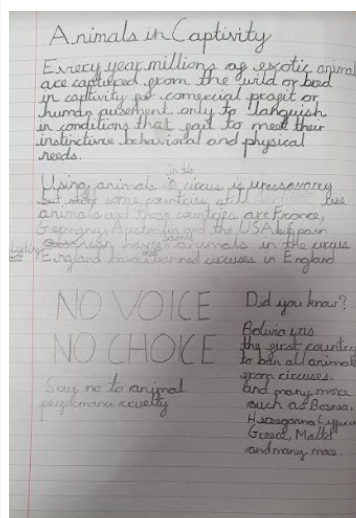 Animals in Captivity
Every year millions of exotic animal
are captured from the wild or bred
in captivity for comercial profit or
human only to languish
in conditions that fail to meet their
instinctive behavioral and physical
needs.
in the
Using animals circus is
but some countries still use
animals and these countries are France,
and the USA but
have animals in the circus
England have banned circuses in England
NO VOICE
NO CHOICE
Say no to animal
cruelty
Did you know?
Bolivia was
the first country
to ban all animals
from circuses.
and many more
such as Bosnia,
Greece, Malta
and many more.